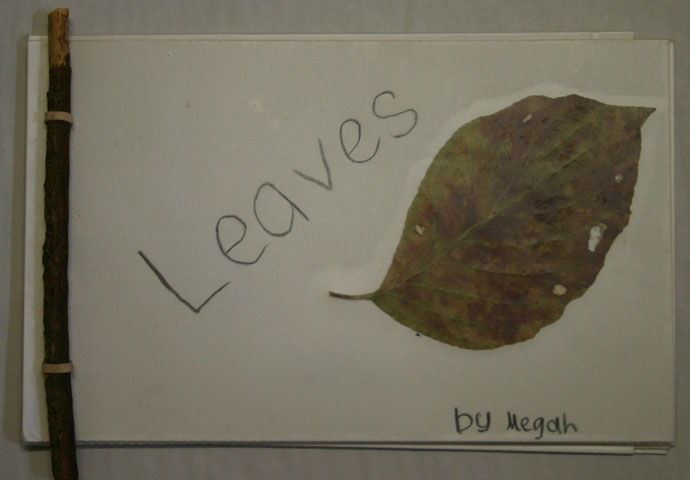 Leaves
by Megan